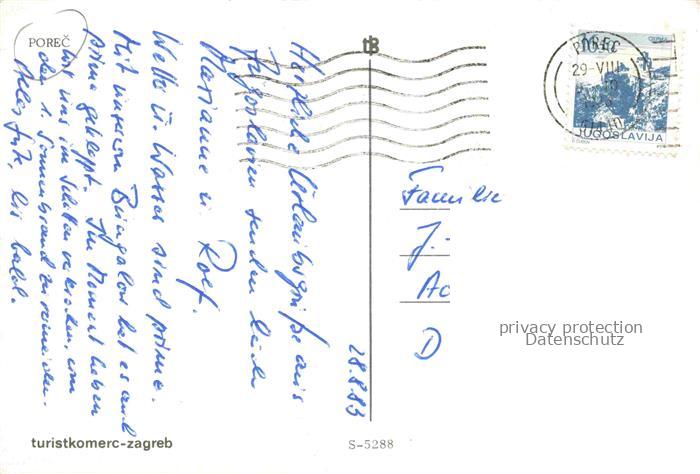 POREČ
Herzliche Urlaubsgrüße aus
Jugoslawien senden Euch
Marianne u. Rolf.
Wetter u. Wasser sind prima.
Mit unserem Bungalow hat es auch
prima geklappt. Im Moment haben
wir uns im Schatten verkrochen, um
den 1. Sonnenbrand zu vermeiden.
Alles Gute, bis bald.
28.8.83
turistkomerc-zagreb
S-5288
tB
POREČ
29-VIII
JUGOSLAVIJA
Familie
J.
Ac
D
privacy protection
Datenschutz